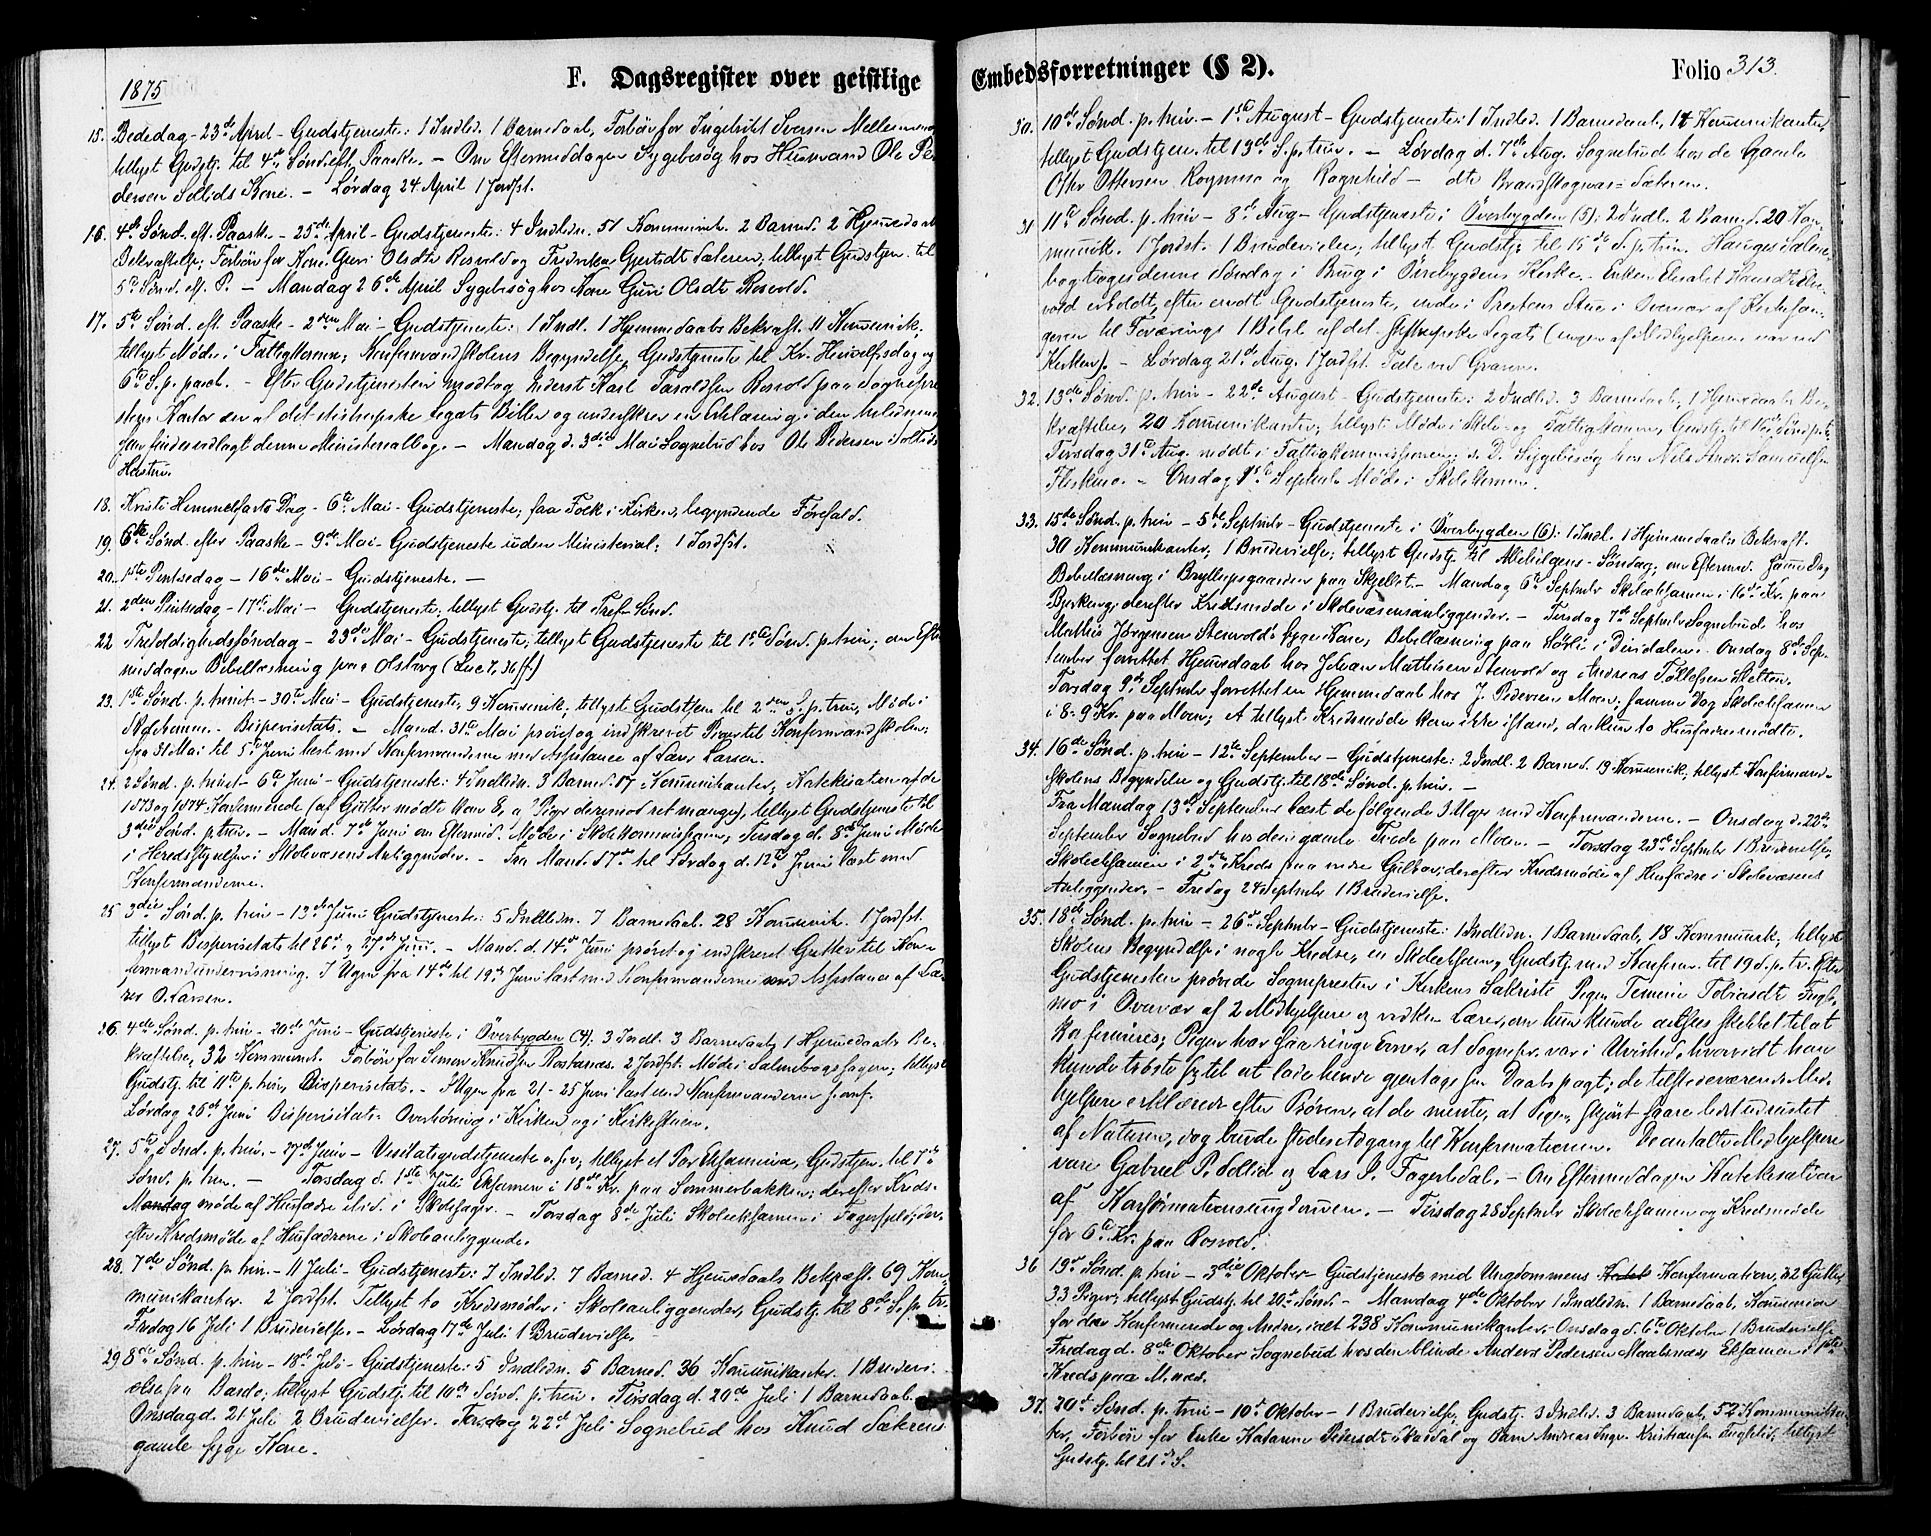 1875
F. Dagsregister over geistlige
15. Bededag - 23de April - Gudstjeneste: 1 Indled. 1 Barnedaab, Forbön for Ingebrikt Iversen
tillyst Gudstj. til 4de Sönd. eft. Paaske. - Om Eftermiddagen Sygebesög hos Husmand Ole Pe-
dersen Sollids Kone. - Lördag 24 April 1 Jordfst.
16. 4de Sönd. eft. Paaske - 25de April - Gudstjeneste: 4 Indledn. 51 Kommunik. 2 Barned. 2 Hjemmedaabs
Bekræftelse; Forbön for Kone Guri Olsdt Rosvold og Fredrikke Sæteren; tillyst Gudstjen. til
5te Sönd. eft. P. - Mandag 26de April Sygebesög hos Kone Guri Olsdt Rosvold.
17. 5te Sönd. eft. Paaske - 2den Mai - Gudstjeneste: 1 Indl. 1 Hjemmedaabs Bekræft. 11 Kommunik.
tillyst Möde i Fattigkomm; Konfirmandskolens Begyndelse, Gudstjeneste til Kr. Himmelfartsdag og
6te S. p. pasch. - Efter Gudstjenesten modtog Inderst Karl Rosvold paa Sognepre-
stens Kontor en af det Legats Bibler og underskrev en Erklæring, i den
indlagt denne Ministerialbog. - Mandag d. 3die Mai Sognebud hos Ole Pedersen Sollids
Hustru.
18. Kristi Himmelfarts Dag - 6te Mai - Gudstjeneste; faa Folk i Kirken, begyndende Förefald.
19. 6te Sönd. efter Paaske - 9de Mai - Gudstjeneste uden Ministerial; 1 Jordfst.
20. 1ste Pintsedag - 16de Mai - Gudstjeneste. -
21. 2den Pintsedag - 17de Mai - Gudstjeneste; tillyst Gudstj. til Tref. Sönd.
22 Trefoldighedssöndag - 23de Mai - Gudstjeneste; tillyst Gudstjeneste til 1ste Sönd. p. trin; om Efter-
middagen Bibellæsning paa Olsborg (Luc 7, 36 ff)
23. 1ste Sönd. p. trinit - 30te Mai - Gudstjeneste, 9 Kommunik; tillyst Gudstjen til 2den S. p. trin, Möde i
Bispevisitats. - Mand. 31te Mai prövet og indskrevet Piger til Konfirmandskolen;
fra 31 Mai til 5te Juni læst med Konfirmanderne med Assistance af Lars Larsen.
24. 2 Sönd. p. trinit - 6te Juni - Gudstjeneste: 4 Indledn. 3 Barned. 17 Kommunikanter, Katekisation af de
1873 og 1874 Konfirmerede (af Gutter mödte kun 8, a Piger derimod ret mange), tillyst Gudstjeneste til
3die Sönd. p. trin. - Mand. 7de Juni om Eftermid. Möde i Skolekommissionen; Tirsdag d. 8de Juni Möde
i Heredsstyrelsen i Skolevæsens Anliggender. - Fra Mand. d. 7de til Lördag d. 12te Juni læst med
Konfirmanderne.
25 3die Sönd. p. trin - 13de Juni Gudstjeneste: 5 Indledn. 7 Barnedaab. 28 Kommunik. 1 Jordfst.
tillyst Bispevisitats til 26de og 27de Juni. - Mand. d. 14de Juni prövet og indskrevet Gutter til Kon-
firmandundervisning. I Ugen fra 14de til 19de Juni læst med Konfirmanderne med Assistance af Læ-
rer O. Larsen.
26. 4de Sönd. p. trin - 20de Juni - Gudstjeneste i Överbygden (4). 3 Indl. 3 Barnedaab, 1 Hjemmedaabs Be-
kræftelse, 32 Kommunik. Forbön for Simon Knudsen Rostanæs. 2 Jordfst. Möde i Salmebogssagen; tillyst
Gudstj. til 11te p. trin, Bispevisitats. - I Ugen fra 21 - 25 Juni læst med Konfirmanderne
Lördag 26de Juni Bispevisitats. Overhöring i Kirken og i Kirkestuen.
27. 5te Sönd. p. trin. - 27de Juni - Visitatsgudstjeneste o. s. v.; tillyst et Par Eksamina, Gudstjen. til 7de
Sönd. p. trin. - Torsdag d. 1ste Juli Eksamen i 18de Kr. paa Sommerbakken; derefter Kreds-
möde af Husfædre i Skolesager. - Torsdag 8de Juli Skoleeksamen i Fagerfjeld; der-
efter Kredsmöde af Husfædrene i Skoleanliggende.
28. 7de Sönd. p. trin. - 11 Juli - Gudstjeneste: 7 Indled. 7 Barned. 4 Hjemmedaabs Bekræft. 69 Kom-
munikanter. 2 Jordfst. Tillyst to Kredsmöder i Skoleanliggender, Gudstj. til 8de S. p. tr.
Fredag 16 Juli 1 Brudevielse. - Lördag 17de Juli 1 Brudevielse.
29 8de Sönd. p. trin - 18de Juli - Gudstjeneste: 5 Indledn. 5 Barned. 36 Kommunikanter. 1 Brudevi-
else fra Bardo; tillyst Gudstj. til 10de Sönd. p. trin. Tirsdag d. 20de Juli 1 Barnedaab.
Onsdag d. 21 Juli 2 Brudevielser. Torsdag 22de Juli Sognebud hos Knud Sækrens
gamle syge Kone.
Embedsforretninger (§ 2).
Folio 313.
30. 10de Sönd. p. trin. - 1ste August - Gudstjeneste: 1 Indled. 1 Barnedaab, 14 Kommunikanter,
tillyst Gudstjen. til 13de S. p. trin. - Lördag d. 7de Aug. Sognebud hos de Gamle
Ottersen Rognmo og Ragnhild - dtr Brandskognes-Sæteren.
31 11te Sönd. p. trin - 8de Aug - Gudstjeneste i Överbygden (5): 2 Indl. 2 Barned. 20 Kom-
munik. 1 Jordst. 1 Brudevielse; tillyst Gudstj. til 15de S. p. trin. Hauges Salme-
bog toges denne Söndag i Brug i Överbygdens Kirke. - Enken Elisabet Hansdt
vold erholdt, efter endt Gudstjeneste, inde i Prestens Stue i Overvær af Kirkesan-
geren til Foræring 1 Bibel af det Legat (ingen af Medhjelperne var ved
Kirken). - Lördag 21de Aug. 1 Jordfst. Tale ved Graven.
32. 13de Sönd. p. trin - 22de August - Gudstjeneste: 2 Indled. 3 Barnedaab, 1 Hjemmedaabs Be-
kræftelse, 20 Kommunikanter, tillyst Möde i Skole- og Fattigkomm, Gudstj. til 16de Sönd. p. tr.
Tirsdag 31te Aug. mödt i Fattigkommissionen; s. D. Sygebesög hos Nils Samuelsen
Fleskmo. - Onsdag 1ste Septemb. Möde i Skolekomm.
33. 15de Sönd. p. trin - 5te Septmbr - Gudstjeneste i Överbygden (6): 1 Indl. 1 Hjemmedaabs Bekræft.
30 Kommunikanter; 1 Brudevielse; tillyst Gudstj. til Allehelgens-Söndag; om Eftermid. samme Dag
Bibellæsning i Bryllupsgaarden paa Skjellet. - Mandag 6te Septmbr Skoleeksamen i 16de Kr. paa
Bjerkeng; derefter Kredsmöde i Skolevæsensanliggender. - Tirsdag 7de Septmbr Sognebud hos
Mathis Jörgensen Stenvold's syge Kone, Bibellæsning paa Sörli i Dividalen. - Onsdag 8de Sep-
tember forrettet Hjemmedaab hos Johan Mathisen Stenvold og Andreas Tollefsen Sletten.
Torsdag 9de Septmbr forrettet en Hjemmedaab hos J. Pedersen Moen; samme Dag Skoleeksamen
i 8-9 Kr. paa Moen; A tillyst Kredsmöde kom ikke istand, da kun to Husfædre mödte.
34. 16de Sönd. p. trin - 12te September - Gudstjeneste: 2 Indl. 2 Barned. 19 Kommunik, tillyst Konfirmand-
skolens Begyndelse og Gudstj. til 18de Sönd. p. trin. -
Fra Mandag 13de September læst de fölgende 3 Uger med Konfirmanderne. - Onsdag d. 22de
September Sognebud hos den gamle paa Moen. - Torsdag 23de Septmbr 1 Brudevielse;
Skoleeksamen i 2den Kreds paa nedre Gulhav; derefter Kredsmöde af Husfædre i Skolevæsens
Anliggender. - Fredag 24 Septmbr 1 Brudevielse.
35. 18de Sönd. p. trin - 26de Septmbr - Gudstjeneste: 1 Indledn. 1 Barnedaab, 18 Kommunik; tillyst
Skolens Begyndelse i nogle Kredse, en Skoleeksamen, Gudstj. med Konfirm. til 19 S. p. tr. Efter
Gudstjenesten prövede Sognepresten i Kirkens Sakristi Pigen Temine Tobiasdt Fugl-
mo i Overvær af 2 Medhjelpere og vedkom. Lærer, om hun kunde ansees skikket til at
konfirmeres; Pigen har saa ringe Evner, at Sognepr. var i Uvished, hvorvidt han
kunde tröste sig til at lade hende gjentage sin Daabspagt; de tilstedeværende Med-
hjelpere erklærede efter Pröven, at de mente, at Pigen, skjönt saare lidt udrustet
af Naturen, dog burde stedes Adgang til Konfirmationen. De antaltte Medhjelpere
vare Gabriel P. Sollid og Lars J. Fagerlidal. - Om Eftermiddagen Katekisation
af Konfirmationsungdommen. - Tirsdag 28 Septmbr Skoleeksamen og Kredsmöde
for 6te Kr. paa Rosvold.
36 19de Sönd. p. trin - 3die Oktober - Gudstjeneste med Ungdommens Konfirmation, 32 Gutter,
33 Piger; tillyst Gudstj. til 20de Sönd. - Mandag 4de Oktober 1 Indledn. 1 Barnedaab, Kommunion
for de Konfirmerede og Andre, ialt 238 Kommunikanter. - Onsdag d. 6te Oktober 1 Brudevielse.
Fredag d. 8de Oktober Sognebud hos den blinde Anders Pedersen Maalsnæs; Eksamen i 1ste
Kreds paa M.næs.
37. 20de Sönd. p. trin - 10de Oktober - 1 Brudevielse, Gudstj. 3 Indled. 3 Barnedaab, 52 Kommunikan-
ter, Forbön for Enke Katarine Pedersdt Skardal og Barn Andreas Ingv. Kristiansen Fuglelid; tillyst
Gudstj. til 21de S.